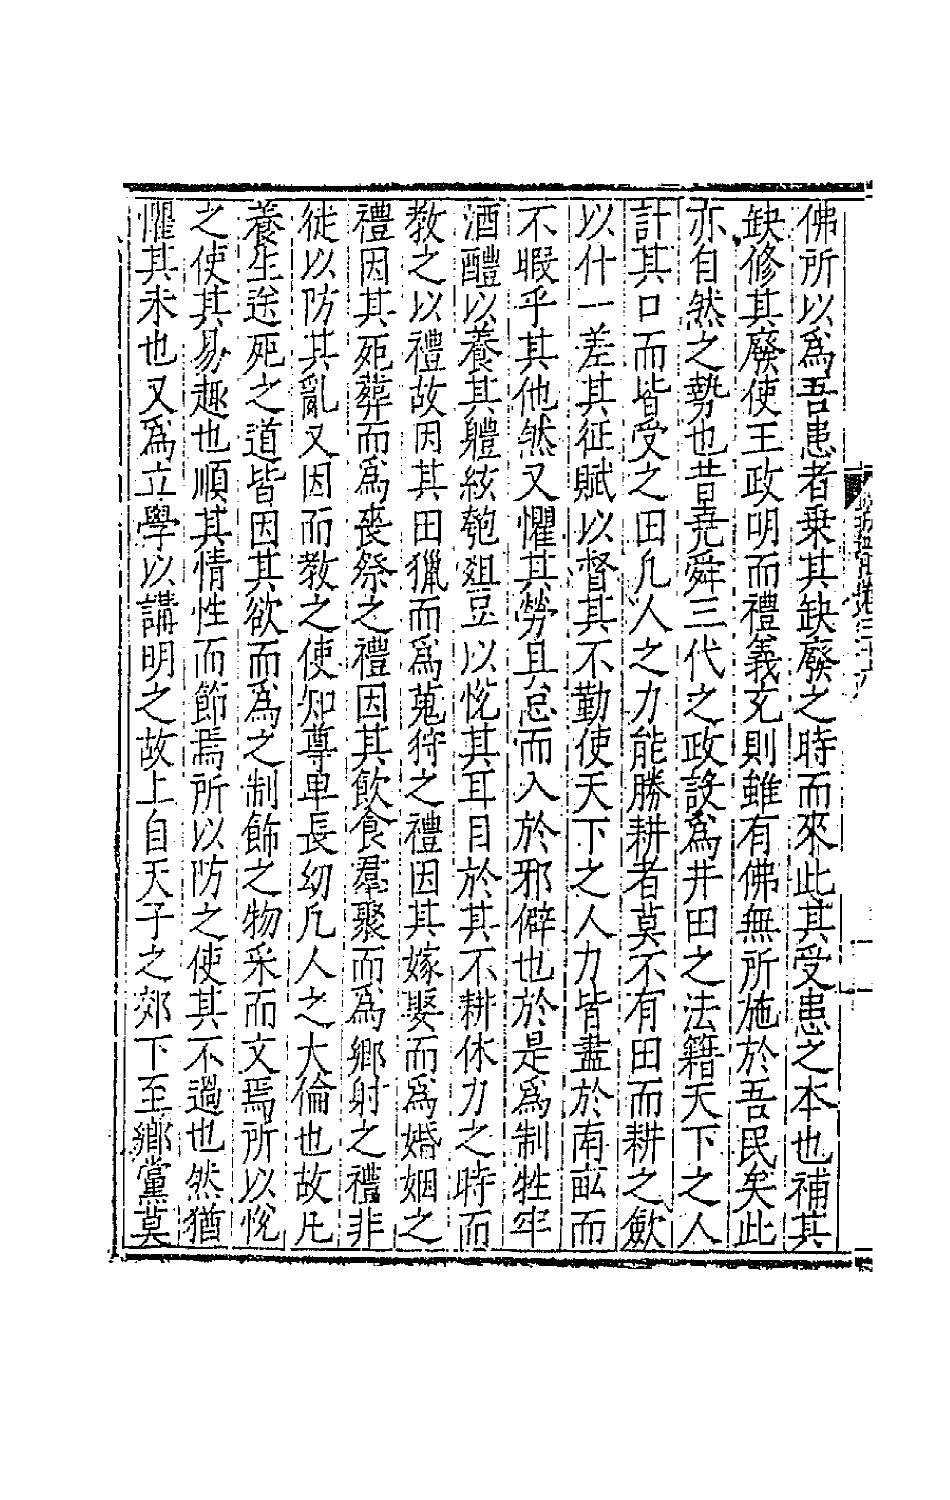 佛所以爲吾患者乗其缺廢之時而來此其受患之本也補其
缺修其廢使王政明而禮義充則雖有佛無所施於吾民矣此
亦自然之勢也昔堯舜三代之政設爲井田之法籍天下之人
計其口而皆受之田凡人之力能勝耕者莫不有田而耕之斂
以什一差其征賦以督其不勤使天下之人力皆盡於南畝而
不暇乎其他然又懼其勞且怠而入於邪僻也於是爲制牲牢
酒醴以養其軆絃匏俎豆以恱其耳目於其不耕休力之時而
教之以禮故因其田獵而爲蒐狩之禮因其嫁娶而爲婚姻之
禮因其死葬而爲䘮祭之禮因其飲食羣聚而爲鄉射之禮非
徒以防其亂又因而教之使知尊卑長幼凡人之大倫也故凡
養生送死之道皆因其欲而爲之制飾之物采而文焉所以恱
之使其易趣也順其情性而節焉所以防之使其不過也然猶
懼其未也又爲立學以講明之故上自天子之郊下至鄉黨莫